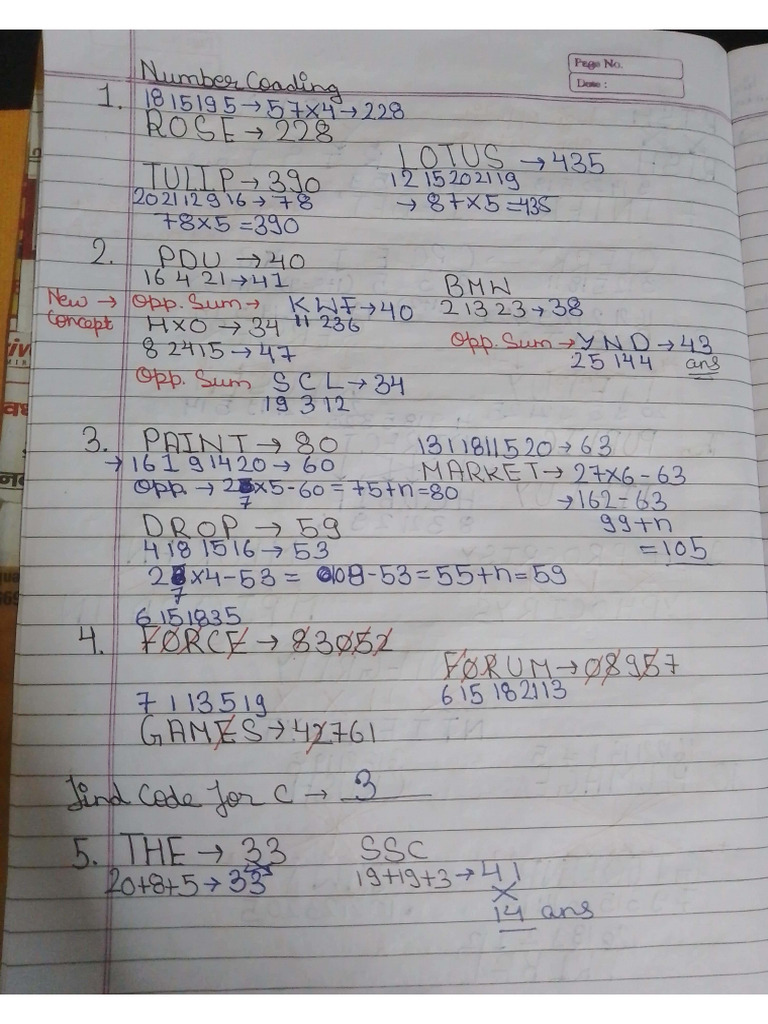 Page No.
Date :
Number Coading
1. 18 15 19 5 → 57×4 → 228
ROSE → 228
LOTUS → 435
TULIP → 390
12 15 20 21 19
20 21 12 9 16 → 78
→ 87×5 = 435
78×5 = 390
2. PDU → 40
16 4 21 → 41
BMW
New → Opp. Sum → KWF → 40
2 13 23 → 38
Concept
HXO → 34
11 23 6
Opp. Sum → YND → 43
8 24 15 → 47
25 14 4
ans
Opp. Sum SCL → 34
19 3 12
3. PAINT → 80
13 1 18 11 5 20 → 63
→ 16 1 9 14 20 → 60
MARKET → 27×6 - 63
Opp. → 27×5-60 = 75+n=80
→ 162-63
DROP → 59
99+n
4 18 15 16 → 53
= 105
27×4-53 = 108-53=55+n=59
6 15 18 3 5
4. FORCE → 83052
FORUM → 08957
6 15 18 21 13
7 1 13 5 19
GAMES → 42761
find Code for C → 3
5. THE → 33
SSC
20+8+5 → 33
19+19+3 → 41
14 ans